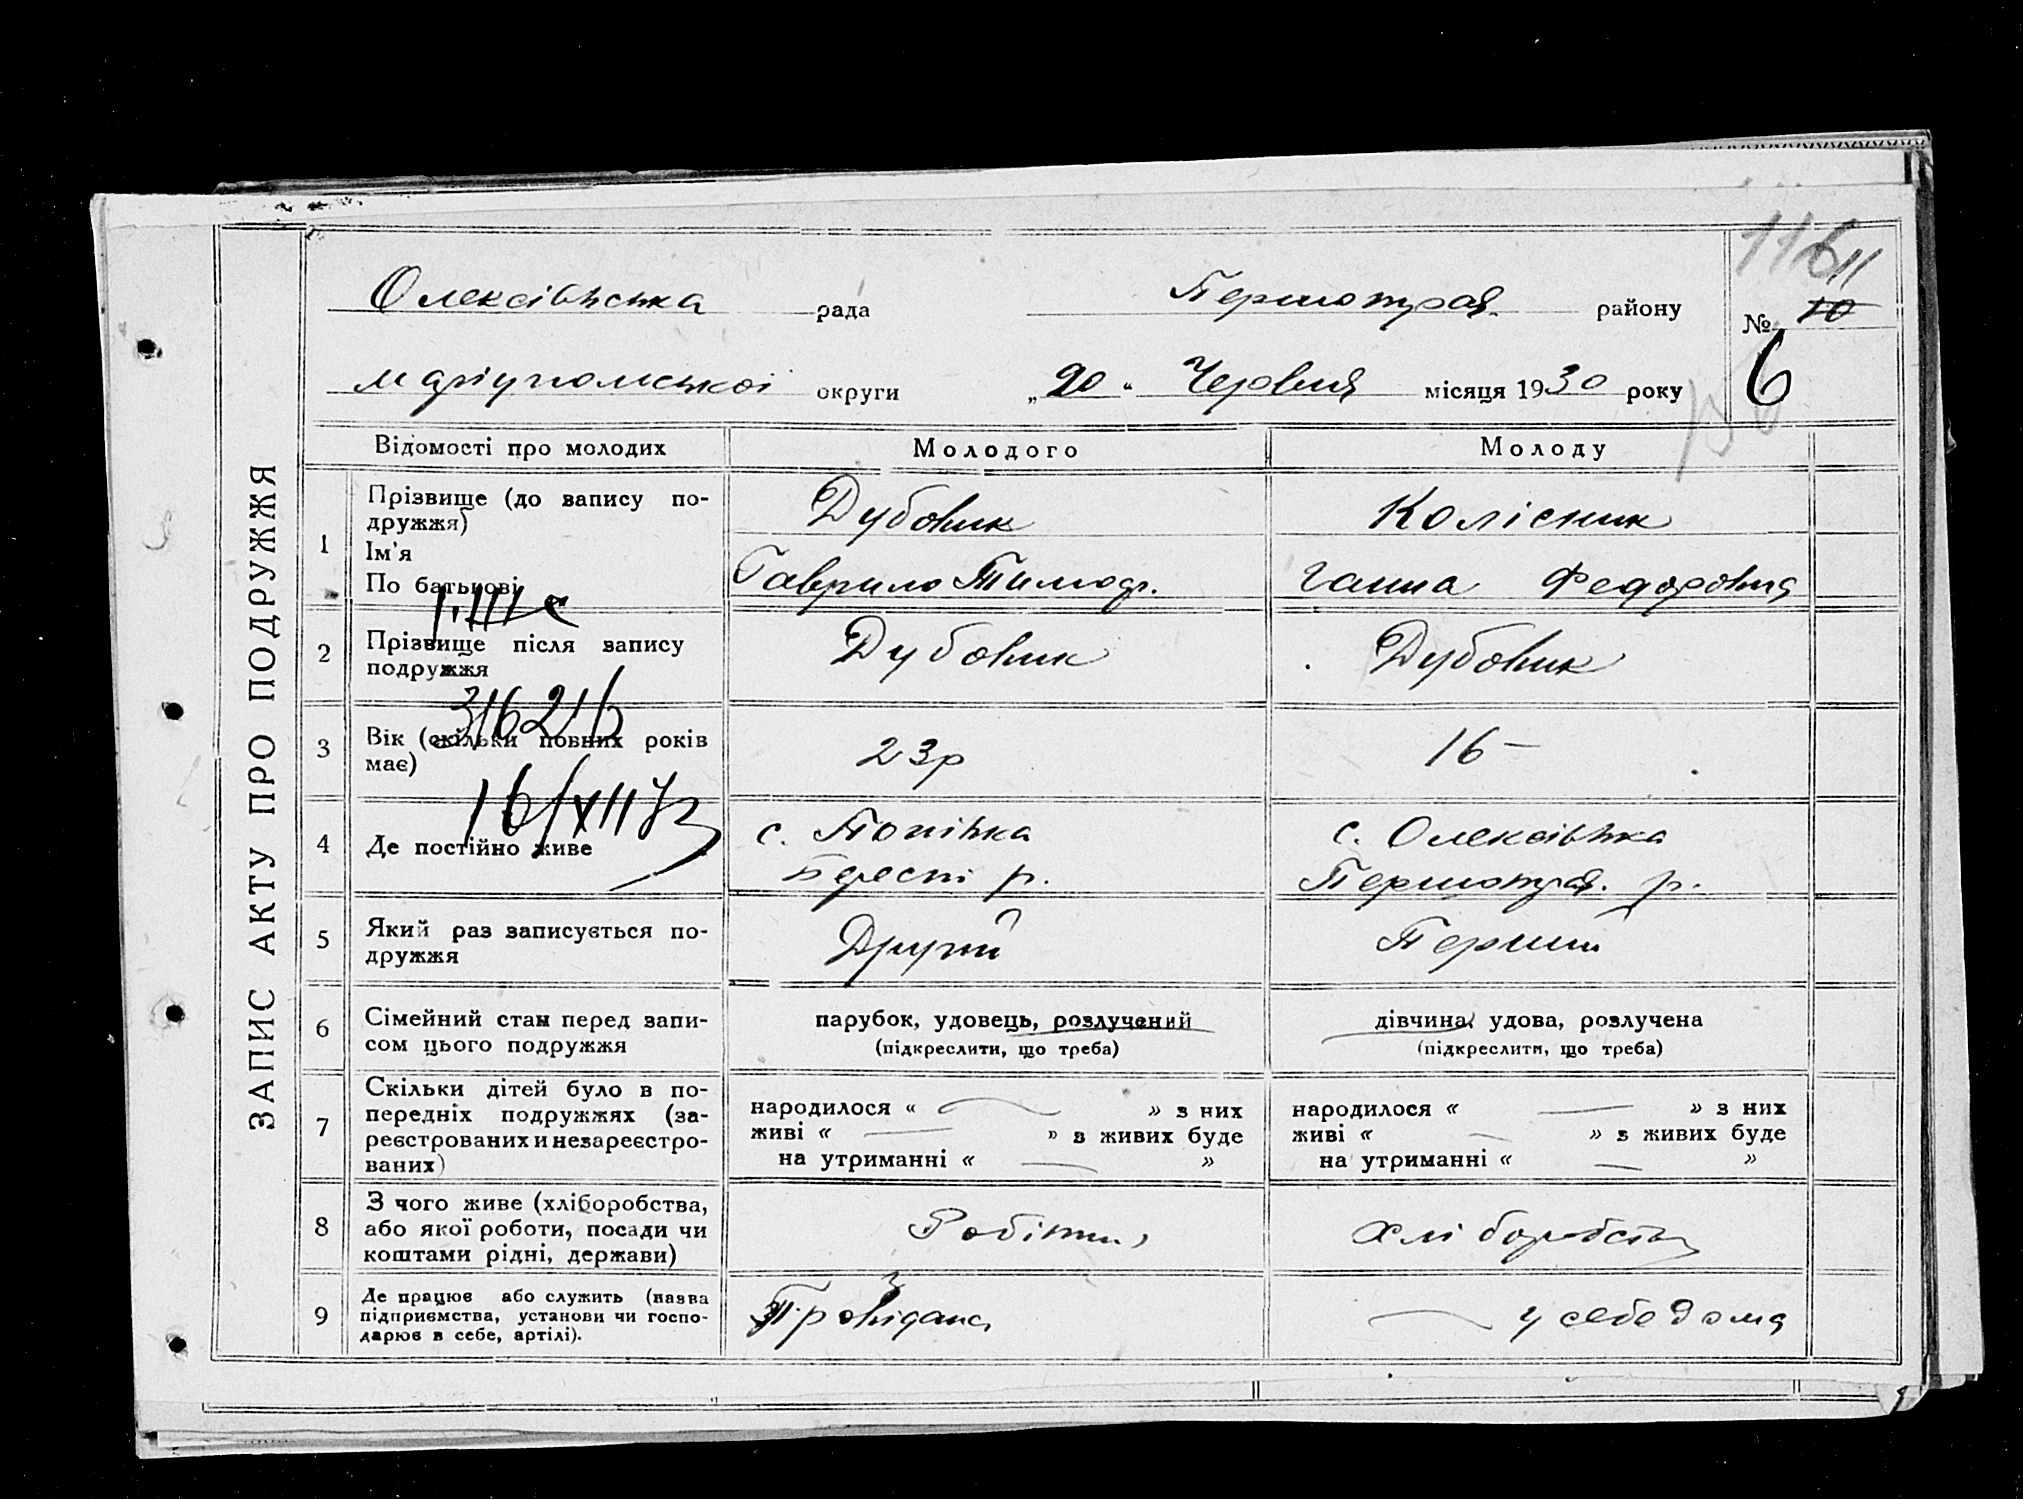 ЗАПИС АКТУ ПРО ПОДРУЖЖЯ
116 11
Олексіївська рада Першотрав. району № 10
маріупольської округи „20“ Червня місяця 1930 року 6
Відомості про молодих Молодого Молоду
1 Прізвище (до запису по-
дружжя) Дубовик Колісник
Ім'я
По батькові Гаврило Тимоф. Ганна Федоровна
2 Прізвище після запису
подружжя Дубовик Дубовик
316216
3 Вік (скільки повних років
має) 23р 16 —
16/XII 73
4 Де постійно живе с. Попівка с. Олексіївка
Берест р. Першотрав. р.
5 Який раз записується по-
дружжя Другий Перший
6 Сімейний стан перед запи-
сом цього подружжя парубок, удовець, розлучений дівчина, удова, розлучена
(підкреслити, що треба) (підкреслити, що треба)
7 Скільки дітей було в по-
передніх подружжях (за-
реєстрованих и незареєстро-
ваних)
народилося « — » з них народилося « — » з них
живі « — » з живих буде живі « — » з живих буде
на утриманні « — » на утриманні « — »
8 З чого живе (хліборобства,
або якої роботи, посади чи
коштами рідні, держави) Робітн. хліборобств
9 Де працює або служить (назва
підприємства, установи чи госпо-
дарює в себе, артілі). — у себе дома